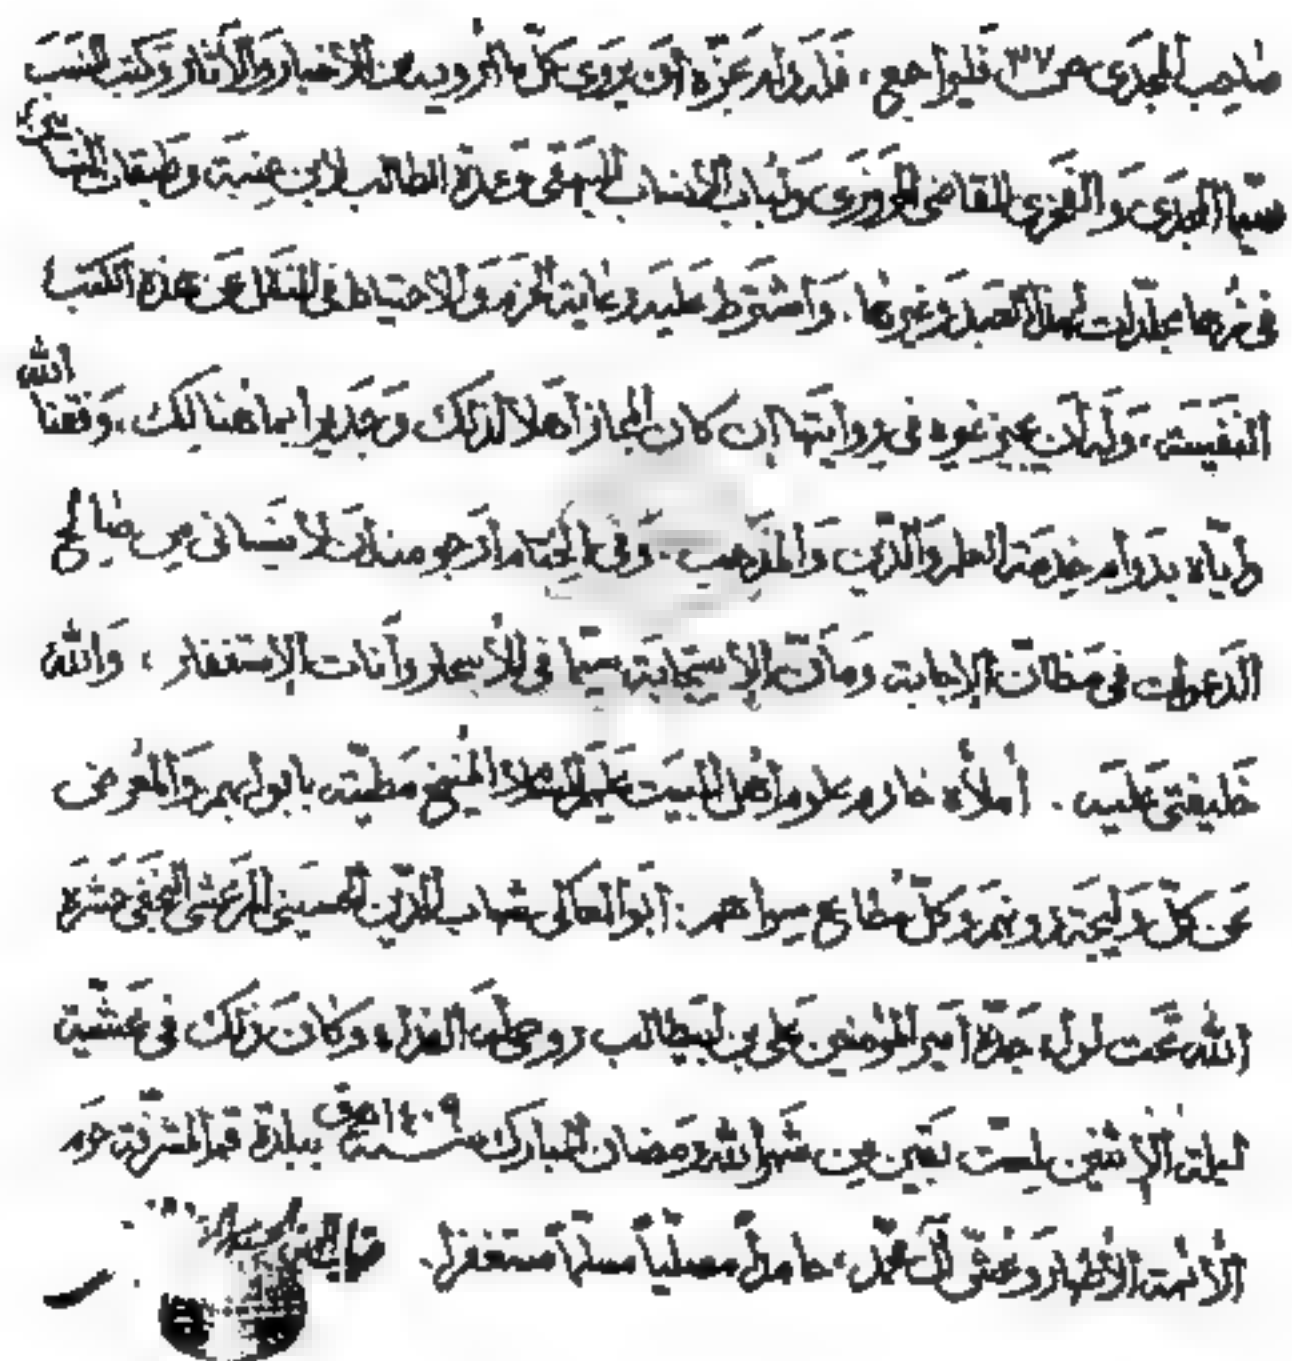 صاحب المجدى ص ٣٧ فليراجع ، فله دام عزّه أن يروى كلّ ما أرويه من الأخبار والآثار وكتب النسب
سيّما المجدى والفخرى للقاضى المروزى ولباب الأنساب للبيهقى وعمدة الطالب لابن عنبة وطبقات النسّابين
فى مجلّدات لهذا العبد وغيرها . واشترط عليه رعاية الحزم والاحتياط فى النقل عن هذه الكتب
النفيسة ، وله أن يجيز غيره فى روايتها إن كان المجاز أهلا لذلك وجديرا بما هنالك ، وفّقنا الله
وايّاه بدوام خدمة العلم والدّين والمذهب . وفى الختام أرجو منه أن لا ينسانى من صالح
الدعوات فى مظانّ الإجابة ومآنّ الإستجابة سيّما فى الأسحار وآنات الإستغفار ، والله
خليفتى عليه . أملأه خادم علوم أهل البيت عليهم السلام المنيخ مطيّته بابوابهم والمعرض
عن كلّ وليجة دونهم وكلّ مطاع سواهم : ابو المعالى شهاب الدّين الحسينى المرعشى النجفى حشره
الله تحت لواء جدّه امير المؤمنين على بن ابيطالب روحى له الفداء وكان ذلك فى عشية
ليلة الإثنين لستّ بقين من شهر الله رمضان المبارك سنة ١٤٠٩ هق ببلدة قم المشرّفة حرم
الأئمة الأطهار وعشّ آل محمّد ، حامداً مصلّياً مسلّماً مستغفرا .